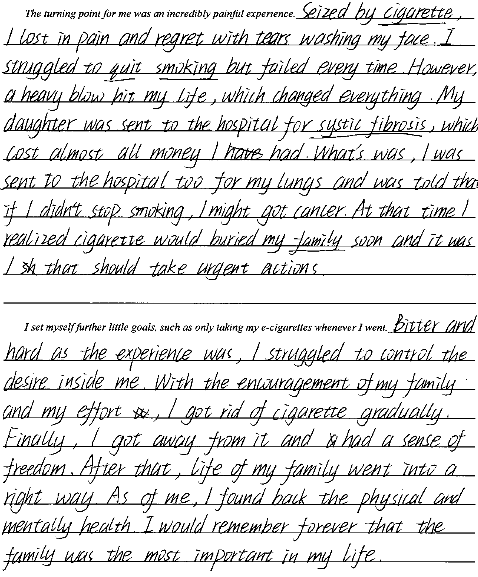 The turning point for me was an incredibly painful experience. Seized by cigarette,
I lost in pain and regret with tears washing my face. I
struggled to quit smoking but failed every time. However,
a heavy blow hit my life, which changed everything. My
daughter was sent to the hospital for systic fibrosis, which
cost almost all money I have had. What's was, I was
sent to the hospital too for my lungs and was told that
if I didn't stop smoking, I might got cancer. At that time I
realized cigarette would buried my family soon and it was
I sh that should take urgent actions.
I set myself further little goals, such as only taking my e-cigarettes whenever I went. Bitter and
hard as the experience was, I struggled to control the
desire inside me. With the encouragement of my family
and my effort, I got rid of cigarette gradually.
Finally, I got away from it and had a sense of
freedom. After that, life of my family went into a
right way. As of me, I found back the physical and
mentally health. I would remember forever that the
family was the most important in my life.